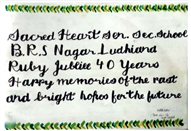 Sacred Heart Sen. Sec. School
B.R.S Nagar Ludhiana
Ruby Jubliee 40 Years
Happy memories of the past
and bright hopes for the future